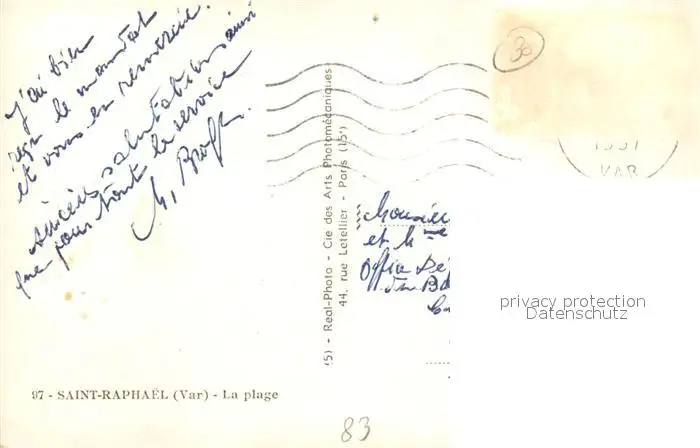 J'ai bien
reçu le mandat
et vous en remercie.
Sincères salutations ainsi
que pour toute le service
M.
30
1951
VAR
(5) - Real-Photo - Cie des Arts Photomécaniques
44, rue Letellier - Paris (15e)
Monsieu
et Mme
Office Dé
Bd
privacy protection
Datenschutz
97 - SAINT-RAPHAËL (Var) - La plage
83